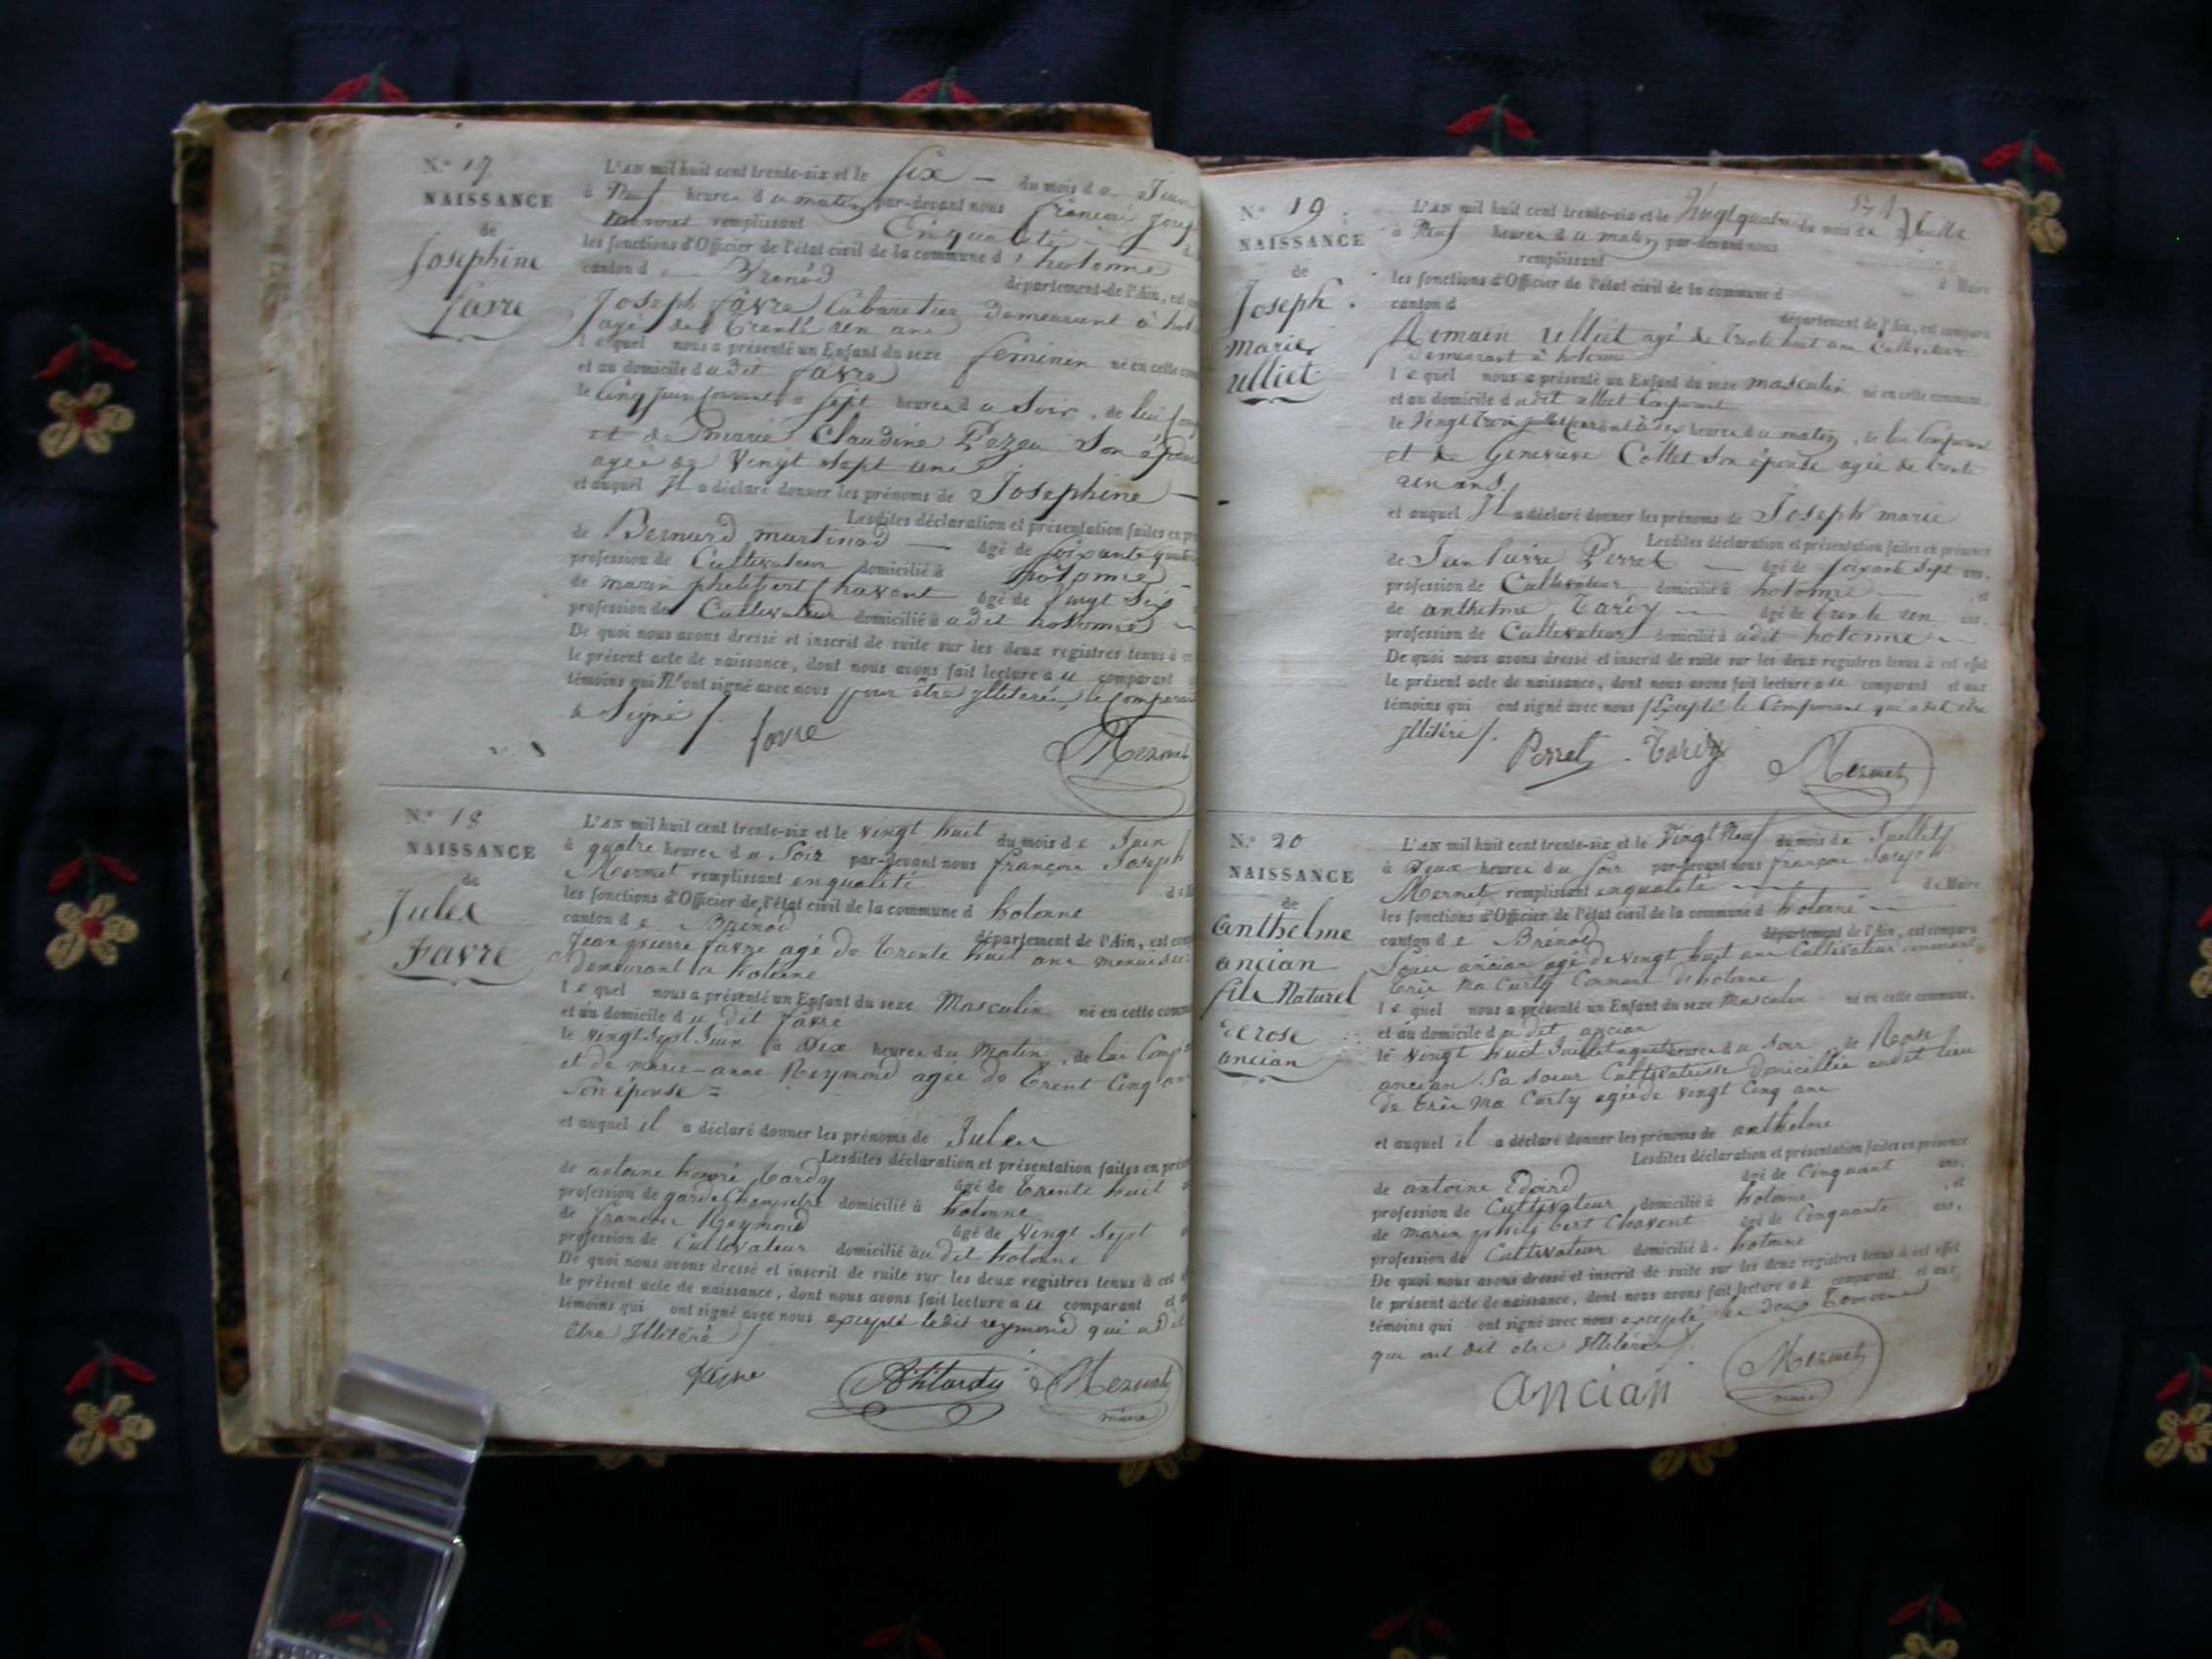 N.º 17
NAISSANCE
de
Josephine
favre
L'AN mil huit cent trente-six et le six — du mois de Juin
à Neuf heures du matin par-devant nous françois Josep
Mermet remplissant Enqualité
les fonctions d'Officier de l'état civil de la commune d'hotonne
canton de Brenod département de l'Ain, est com
Joseph favre Cabaretier demeurant à hot
agé de trente un ans
lequel nous a présenté un Enfant du sexe feminin né en cette com
et au domicile dudit favre
le Cinq Juin courant à sept heures du soir, de lui Com
et de marie Claudine Son épou
agée de Vingt sept ans
et auquel Il a déclaré donner les prénoms de Josephine —
Lesdites déclaration et présentation faites en pr
de Bernard martinod — âgé de soixante quat
profession de Cultivateur domicilié à hotonne
de marin philibert Chavent âgé de vingt Six
profession de Cultivateur domicilié à udit hotonne
De quoi nous avons dressé et inscrit de suite sur les deux registres tenus à c
le présent acte de naissance, dont nous avons fait lecture au comparant
témoins qui N'ont signé avec nous pour être yllitérés, le Compara
a Signé /.
favre
Mermet
N.º 18
NAISSANCE
de
Jules
Favre
L'AN mil huit cent trente-six et le vingt huit du mois de Juin
à quatre heures du Soir par-devant nous françois Joseph
Mermet remplissant enqualité de M
les fonctions d'Officier de l'état civil de la commune d hotonne
canton de Brénod département de l'Ain, est comp
Jean pierre favre agé de trente huit ans menuisie
demeurant a hotonne
lequel nous a présenté un Enfant du sexe Masculin né en cette comm
et au domicile du dit favre
le vingt Sept Juin à Dix heures du Matin, de lui Comp
et de marie-anne Reymond agée de trent Cinq an
son épouse =
et auquel il a déclaré donner les prénoms de Jules
Lesdites déclaration et présentation faites en prés
de antoine honoré tardy âgé de trente huit
profession de garde Champetre domicilié à hotonne
de françois Reymond âgé de Vingt Sept
profession de Cultivateur domicilié au dit hotonne
De quoi nous avons dressé et inscrit de suite sur les deux registres tenus à cet
le présent acte de naissance, dont nous avons fait lecture au comparant et
témoins qui ont signé avec nous excepté ledit reymond qui a dit
être Illitéré /.
favre
Mermet
maire
N.º 19
NAISSANCE
de
Joseph
marie
ulliet
L'AN mil huit cent trente-six et le Vingt quatre du mois de Juillet
à Neuf heures du matin par-devant nous
remplissant
d Maire
les fonctions d'Officier de l'état civil de la commune d
canton d
département de l'Ain, est comparu
Romain ulliet agé de trente huit ans Cultivateur
demeurant à hotonne
lequel nous a présenté un Enfant du sexe masculin né en cette commune,
et au domicile dudit ulliet Comparant
le Vingt trois juillet courant à dix heures du matin, de lui Comparant
et de Genevieve Collet son épouse agée de trente
un ans.
et auquel Il a déclaré donner les prénoms de Joseph marie
Lesdites déclaration et présentation faites en présence
de Jean pierre Perret — âgé de soixante Sept ans,
profession de Cultivateur domicilié à hotonne — et
de anthelme tardy — âgé de trente un ans,
profession de Cultivateur domicilié à udit hotonne —
De quoi nous avons dressé et inscrit de suite sur les deux registres tenus à cet effet
le présent acte de naissance, dont nous avons fait lecture au comparant et aux
témoins qui ont signé avec nous Excepté le Comparant qui a dit etre
yllitéré /.
Perret
Tardy
Mermet
N.º 20
NAISSANCE
de
anthelme
ancian
fils Naturel
de rose
ancian
L'AN mil huit cent trente-six et le Vingt Neuf du mois de Juillet
à Deux heures du soir par-devant nous françois Joseph
Mermet remplissant enqualité — de Maire
les fonctions d'Officier de l'état civil de la commune d hotonne —
canton de Brénod département de l'Ain, est comparu
ancian agé de vingt huit ans Cultivateur demeurant
Commune d'hotonne
lequel nous a présenté un Enfant du sexe Masculin né en cette commune,
et au domicile du dit ancian
le vingt huit Juillet a quatre heures du soir de Rose
ancian Sa soeur Cultivatrice Domiciliée audit lieu
agée de vingt Cinq ans
et auquel il a déclaré donner les prénoms de anthelme
Lesdites déclaration et présentation faites en présence
de antoine âgé de Cinquant ans,
profession de Cultivateur domicilié à hotonne , et
de Marin philibert Chavent âgé de Cinquante ans,
profession de Cultivateur domicilié à hotonne
De quoi nous avons dressé et inscrit de suite sur les deux registres tenus à cet effet
le présent acte de naissance, dont nous avons fait lecture au comparant et aux
témoins qui ont signé avec nous excepté les deux temoins
qui ont dit etre Illitérés /.
ancian
Mermet
maire